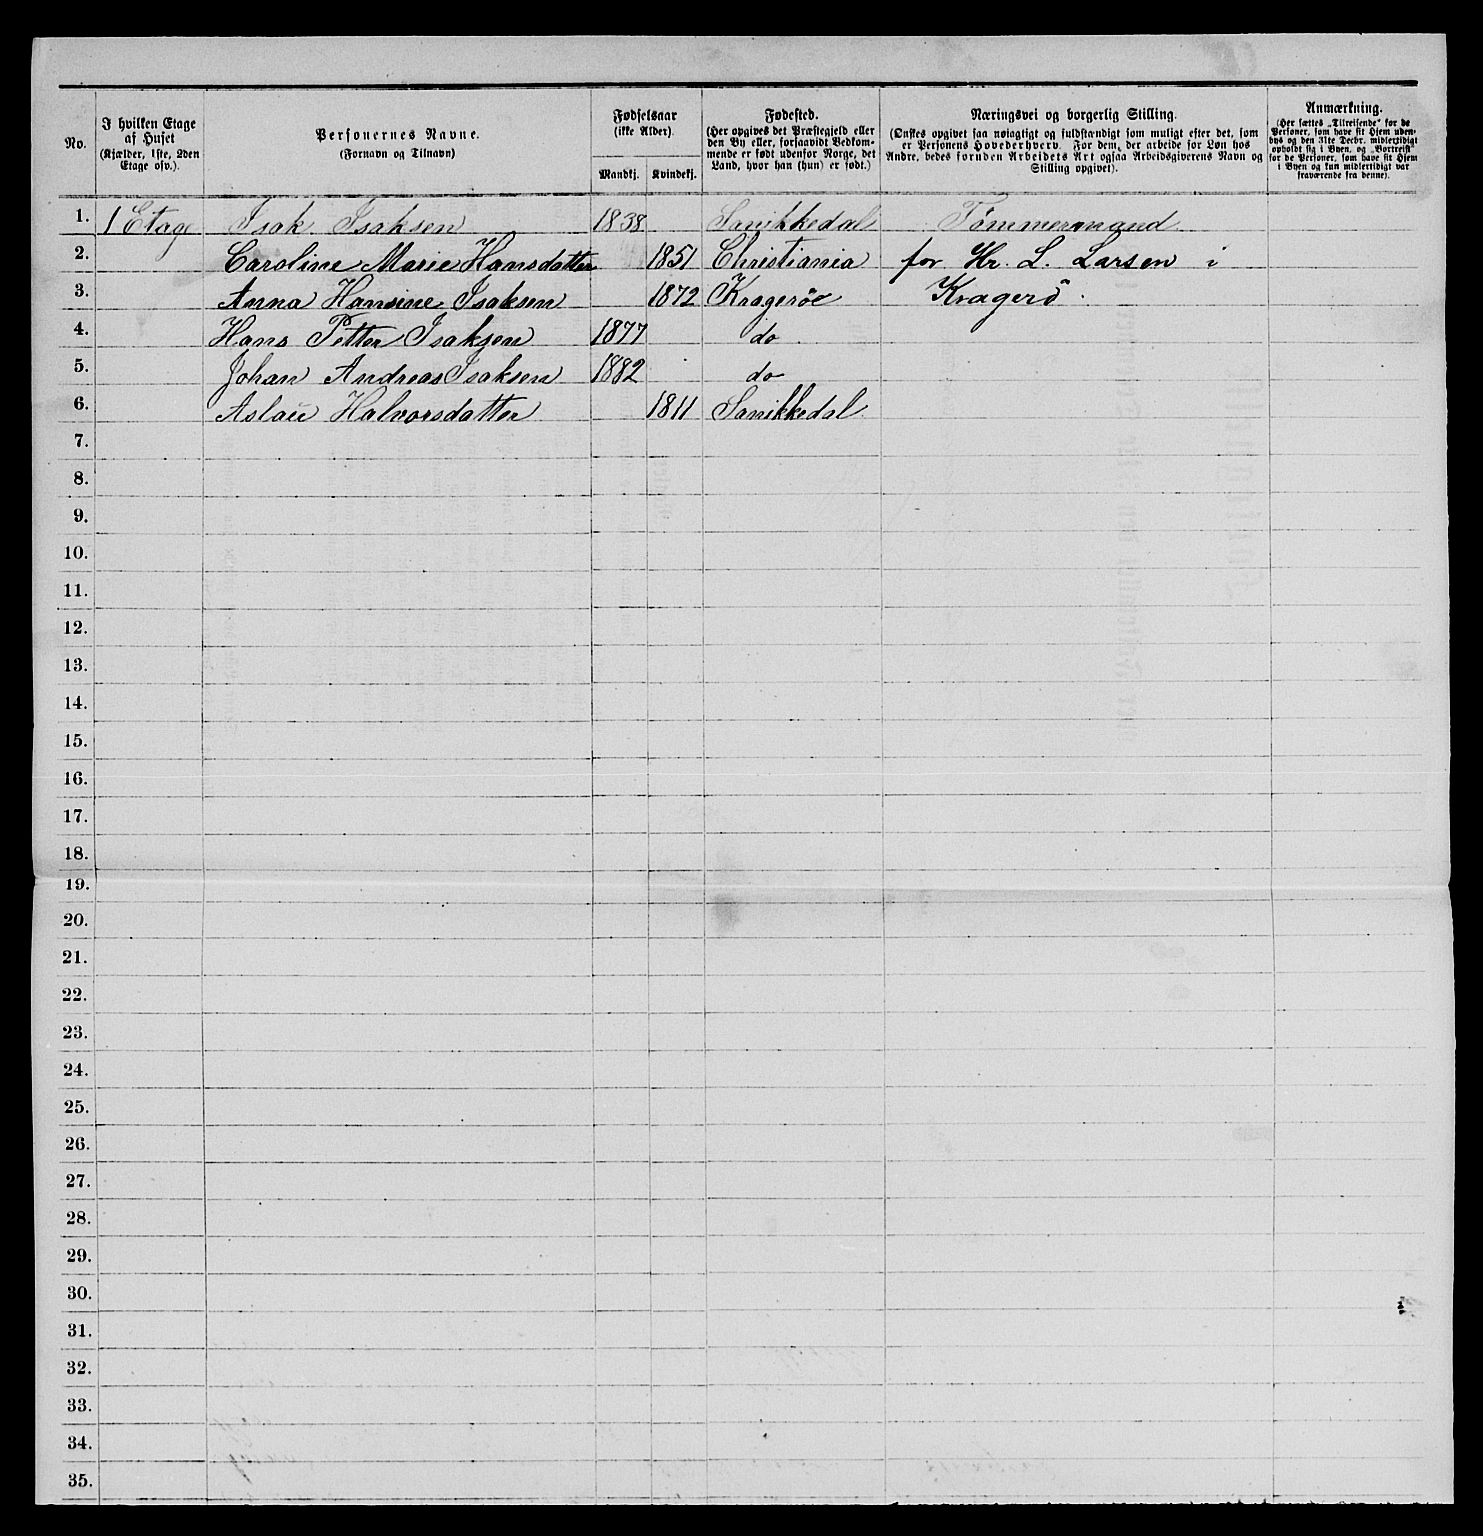 No.
I hvilken Etage
af Huset
(Kjælder, 1ste, 2den
Etage osv.).
Personernes Navne.
(Fornavn og Tilnavn)
Fødselsaar
(ikke Alder).
Mandkj. Kvindekj.
Fødested.
(Her opgives det Præstegjeld eller
den By eller, forsaavidt Vedkom-
mende er født udenfor Norge, det
Land, hvor han (hun) er født.)
Næringsvei og borgerlig Stilling.
(Ønskes opgivet saa nøiagtigt og fuldstændigt som muligt efter det, som
er Personens Hovederhverv. For dem, der arbeide for Løn hos
Andre, bedes foruden Arbeidets Art ogsaa Arbeidsgiverens Navn og
Stilling opgivet).
Anmærkning.
(Her sættes „Tilreisende“ for de
Personer, som have sit Hjem uden-
bys og den 31te Decbr. midlertidigt
opholdt sig i Byen, og „Bortreist“
for de Personer, som have sit Hjem
i Byen og kun midlertidigt var
fraværende fra denne).
1. 1 Etage Isak Isaksen 1838 Sanikkedal Tömmermand
2. Caroline Marie Hansdatter 1851 Christiania for Hr. L. Larsen i
3. Anna Hansine Isaksen 1872 Krageröe Kragerö.
4. Hans Petter Isaksen 1877 do
5. Johan Andreas Isaksen 1882 do
6. Aslau Halvorsdatter 1811 Sanikkedal
7.
8.
9.
10.
11.
12.
13.
14.
15.
16.
17.
18.
19.
20.
21.
22.
23.
24.
25.
26.
27.
28.
29.
30.
31.
32.
33.
34.
35.